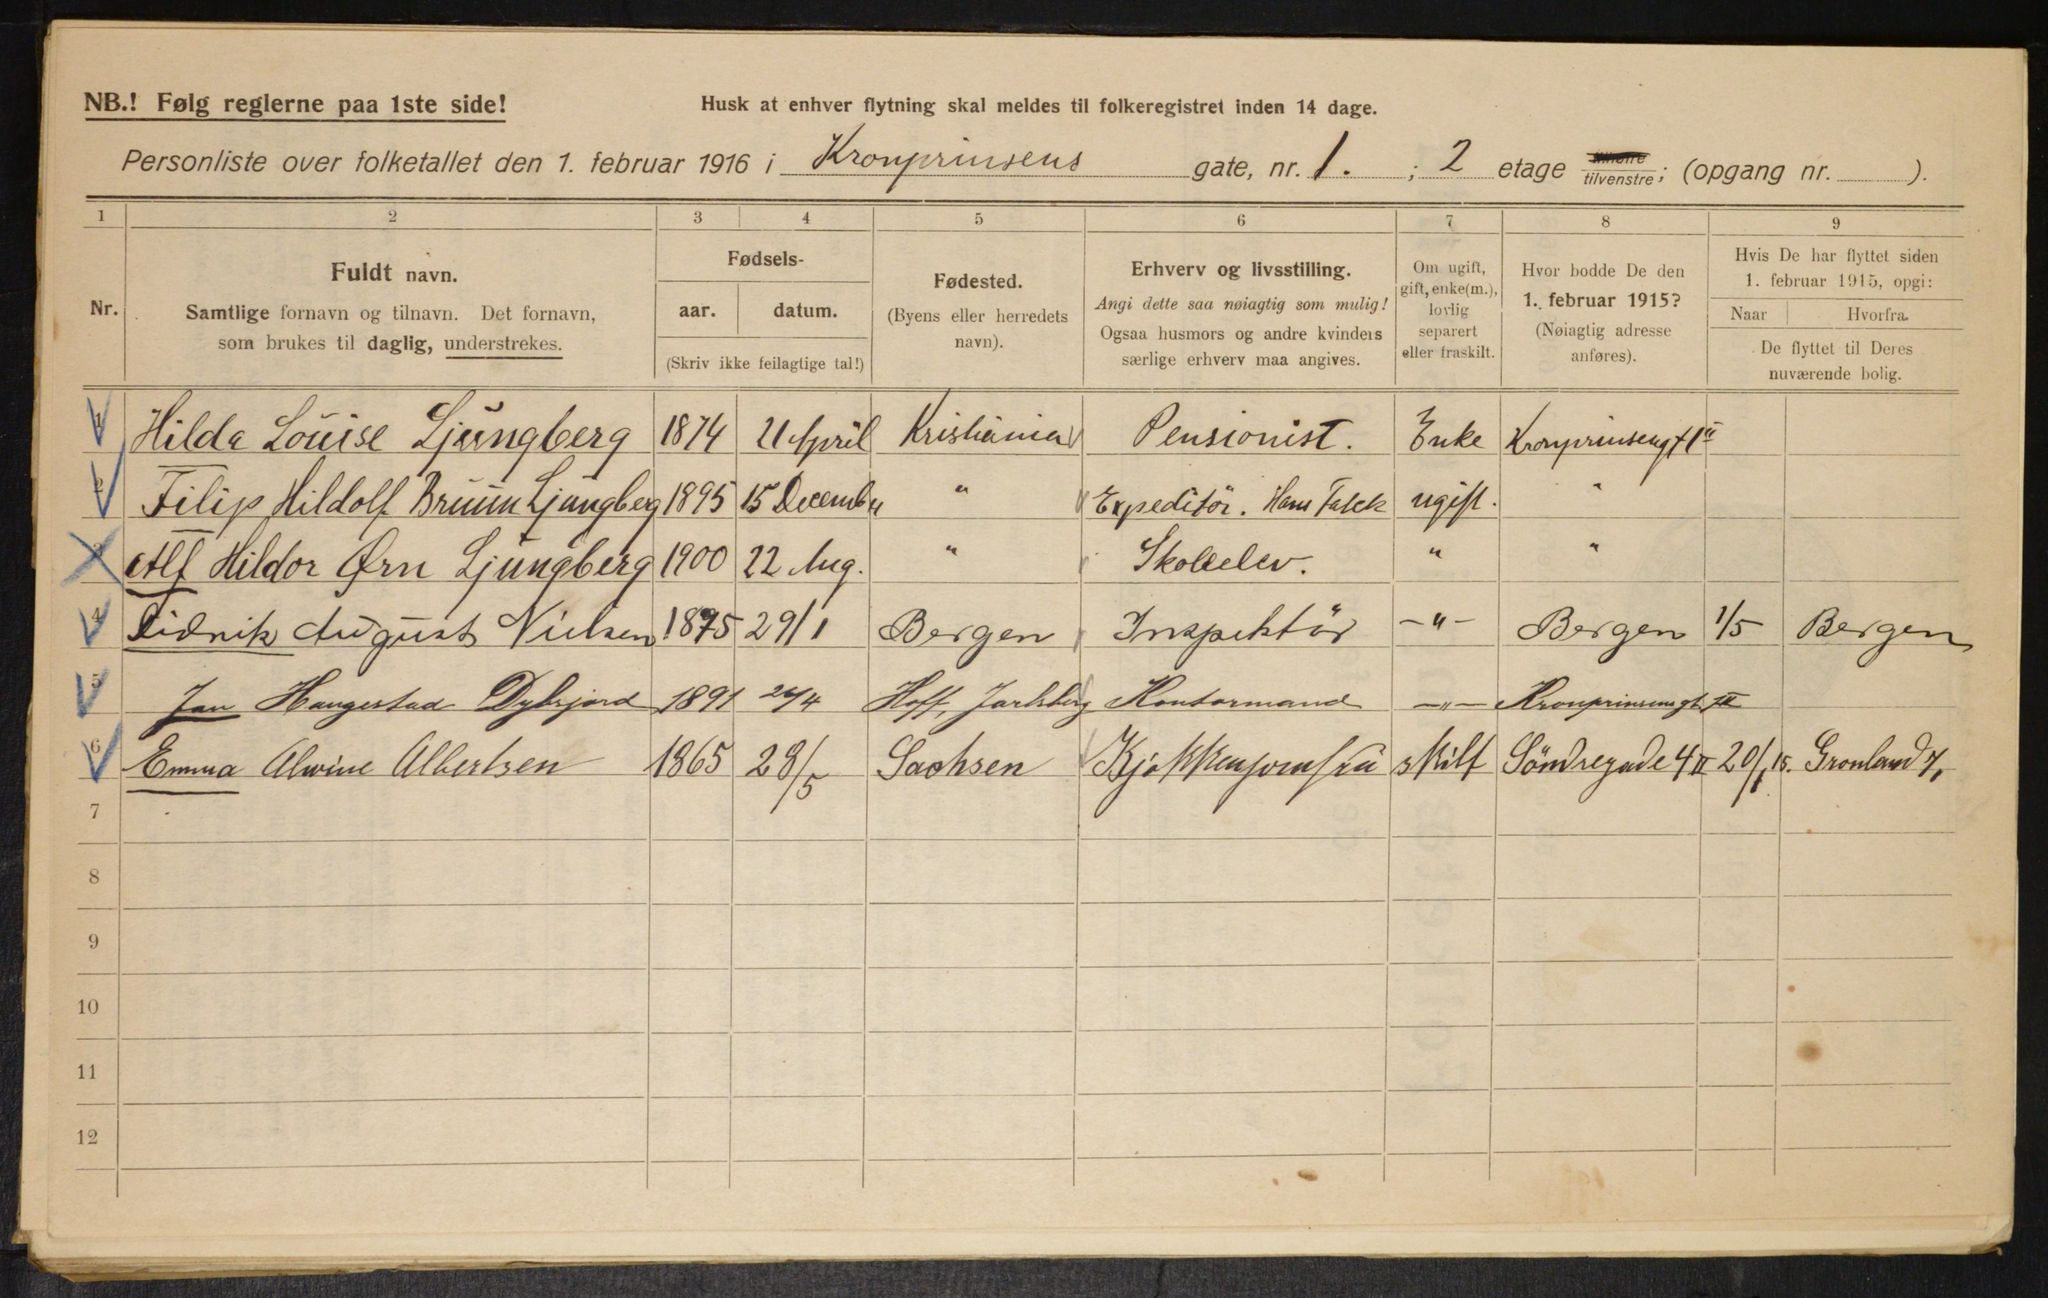 NB.! Følg reglerne paa 1ste side!
Husk at enhver flytning skal meldes til folkeregistret inden 14 dage.
Personliste over folketallet den 1. februar 1916 i Kronprinsens gate, nr. 1. ; 2 etage tilvenstre; (opgang nr. ).
1 2 3 4 5 6 7 8 9
Nr.
Fuldt navn.
Samtlige fornavn og tilnavn. Det fornavn,
som brukes til daglig, understrekes.
Fødsels-
aar. datum.
(Skriv ikke feilagtige tal!)
Fødested.
(Byens eller herredets
navn).
Erhverv og livsstilling.
Angi dette saa nøiagtig som mulig!
Ogsaa husmors og andre kvinders
særlige erhverv maa angives.
Om ugift,
gift, enke(m.),
lovlig
separert
eller fraskilt.
Hvor bodde De den
1. februar 1915?
(Nøiagtig adresse
anføres).
Hvis De har flyttet siden
1. februar 1915, opgi:
Naar Hvorfra.
De flyttet til Deres
nuværende bolig.
1 Hilda Louise Ljungberg 1874 21 April Kristiania Pensionist. Enke Kronprinsengt 1 II
2 Filip Hildolf Bruun Ljungberg 1895 15 December " Expeditör. Hans Falck ugift. "
3 Alf Hildor Ørn Ljungberg 1900 22 Aug. " Skoleelev. " "
4 Didrik August Nielsen 1875 29/1 Bergen Inspektör -"- Bergen 1/5 Bergen
5 Jan Haugestad Dybfjord 1891 /4 Hoff, Jarlsberg Kontormand -"- Kronprinsensgt II
6 Emma Alwine Albertsen 1865 28/5 Sachsen skilt Söndregade 4 II 20/1 15. Gronland
7
8
9
10
11
12